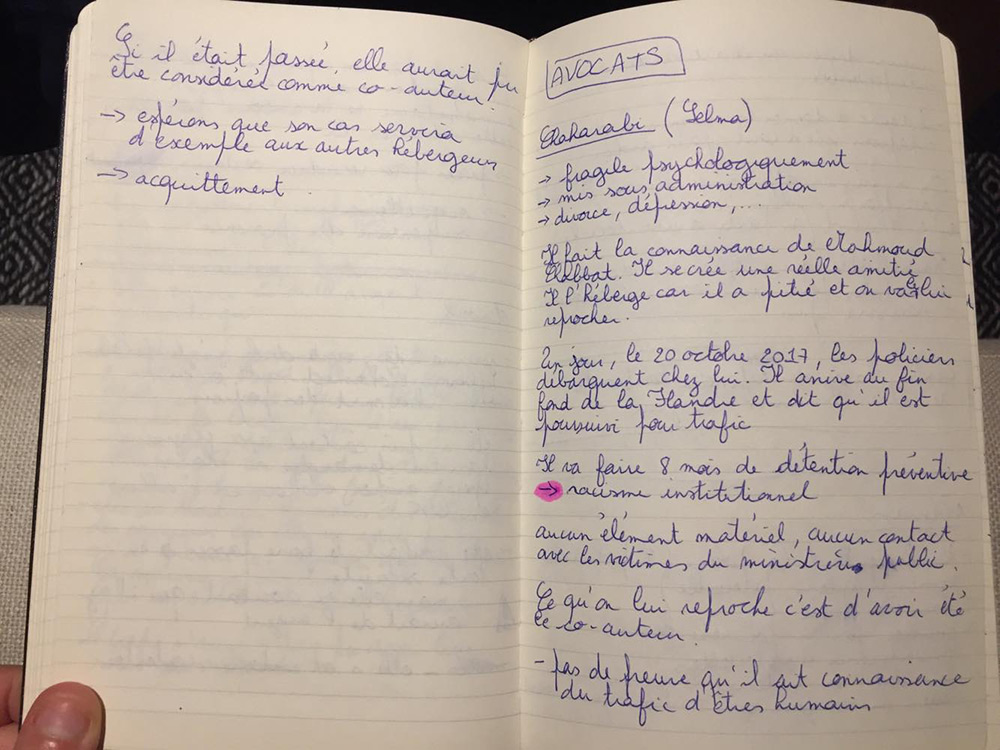 Si il était passée, elle aurait pu
être considéréé comme co-auteur.
→ espérons que son cas servira
d'exemple aux autres hébergeurs
→ acquittement
AVOCATS
(Selma)
→ fragile psychologiquement
→ mis sous administration
→ divorce, dépression,...
Il fait la connaissance de Mahmoud
Il se crée une réelle amitié
Il l'héberge car il a pitié et on va le lui
reprocher.
Un jour, le 20 octobre 2017, les policiers
débarquent chez lui. Il arrive au fin
fond de la Flandre et dit qu'il est
poursuivi pour trafic
Il va faire 8 mois de détention préventive
→ racisme institutionnel
aucun élément matériel, aucun contact
avec les victimes du ministère public.
Ce qu'on lui reproche c'est d'avoir été
co-auteur
- pas de preuve qu'il ait connaissance
du trafic d'êtres humains